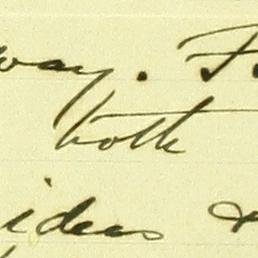 way. F
both
ideas &